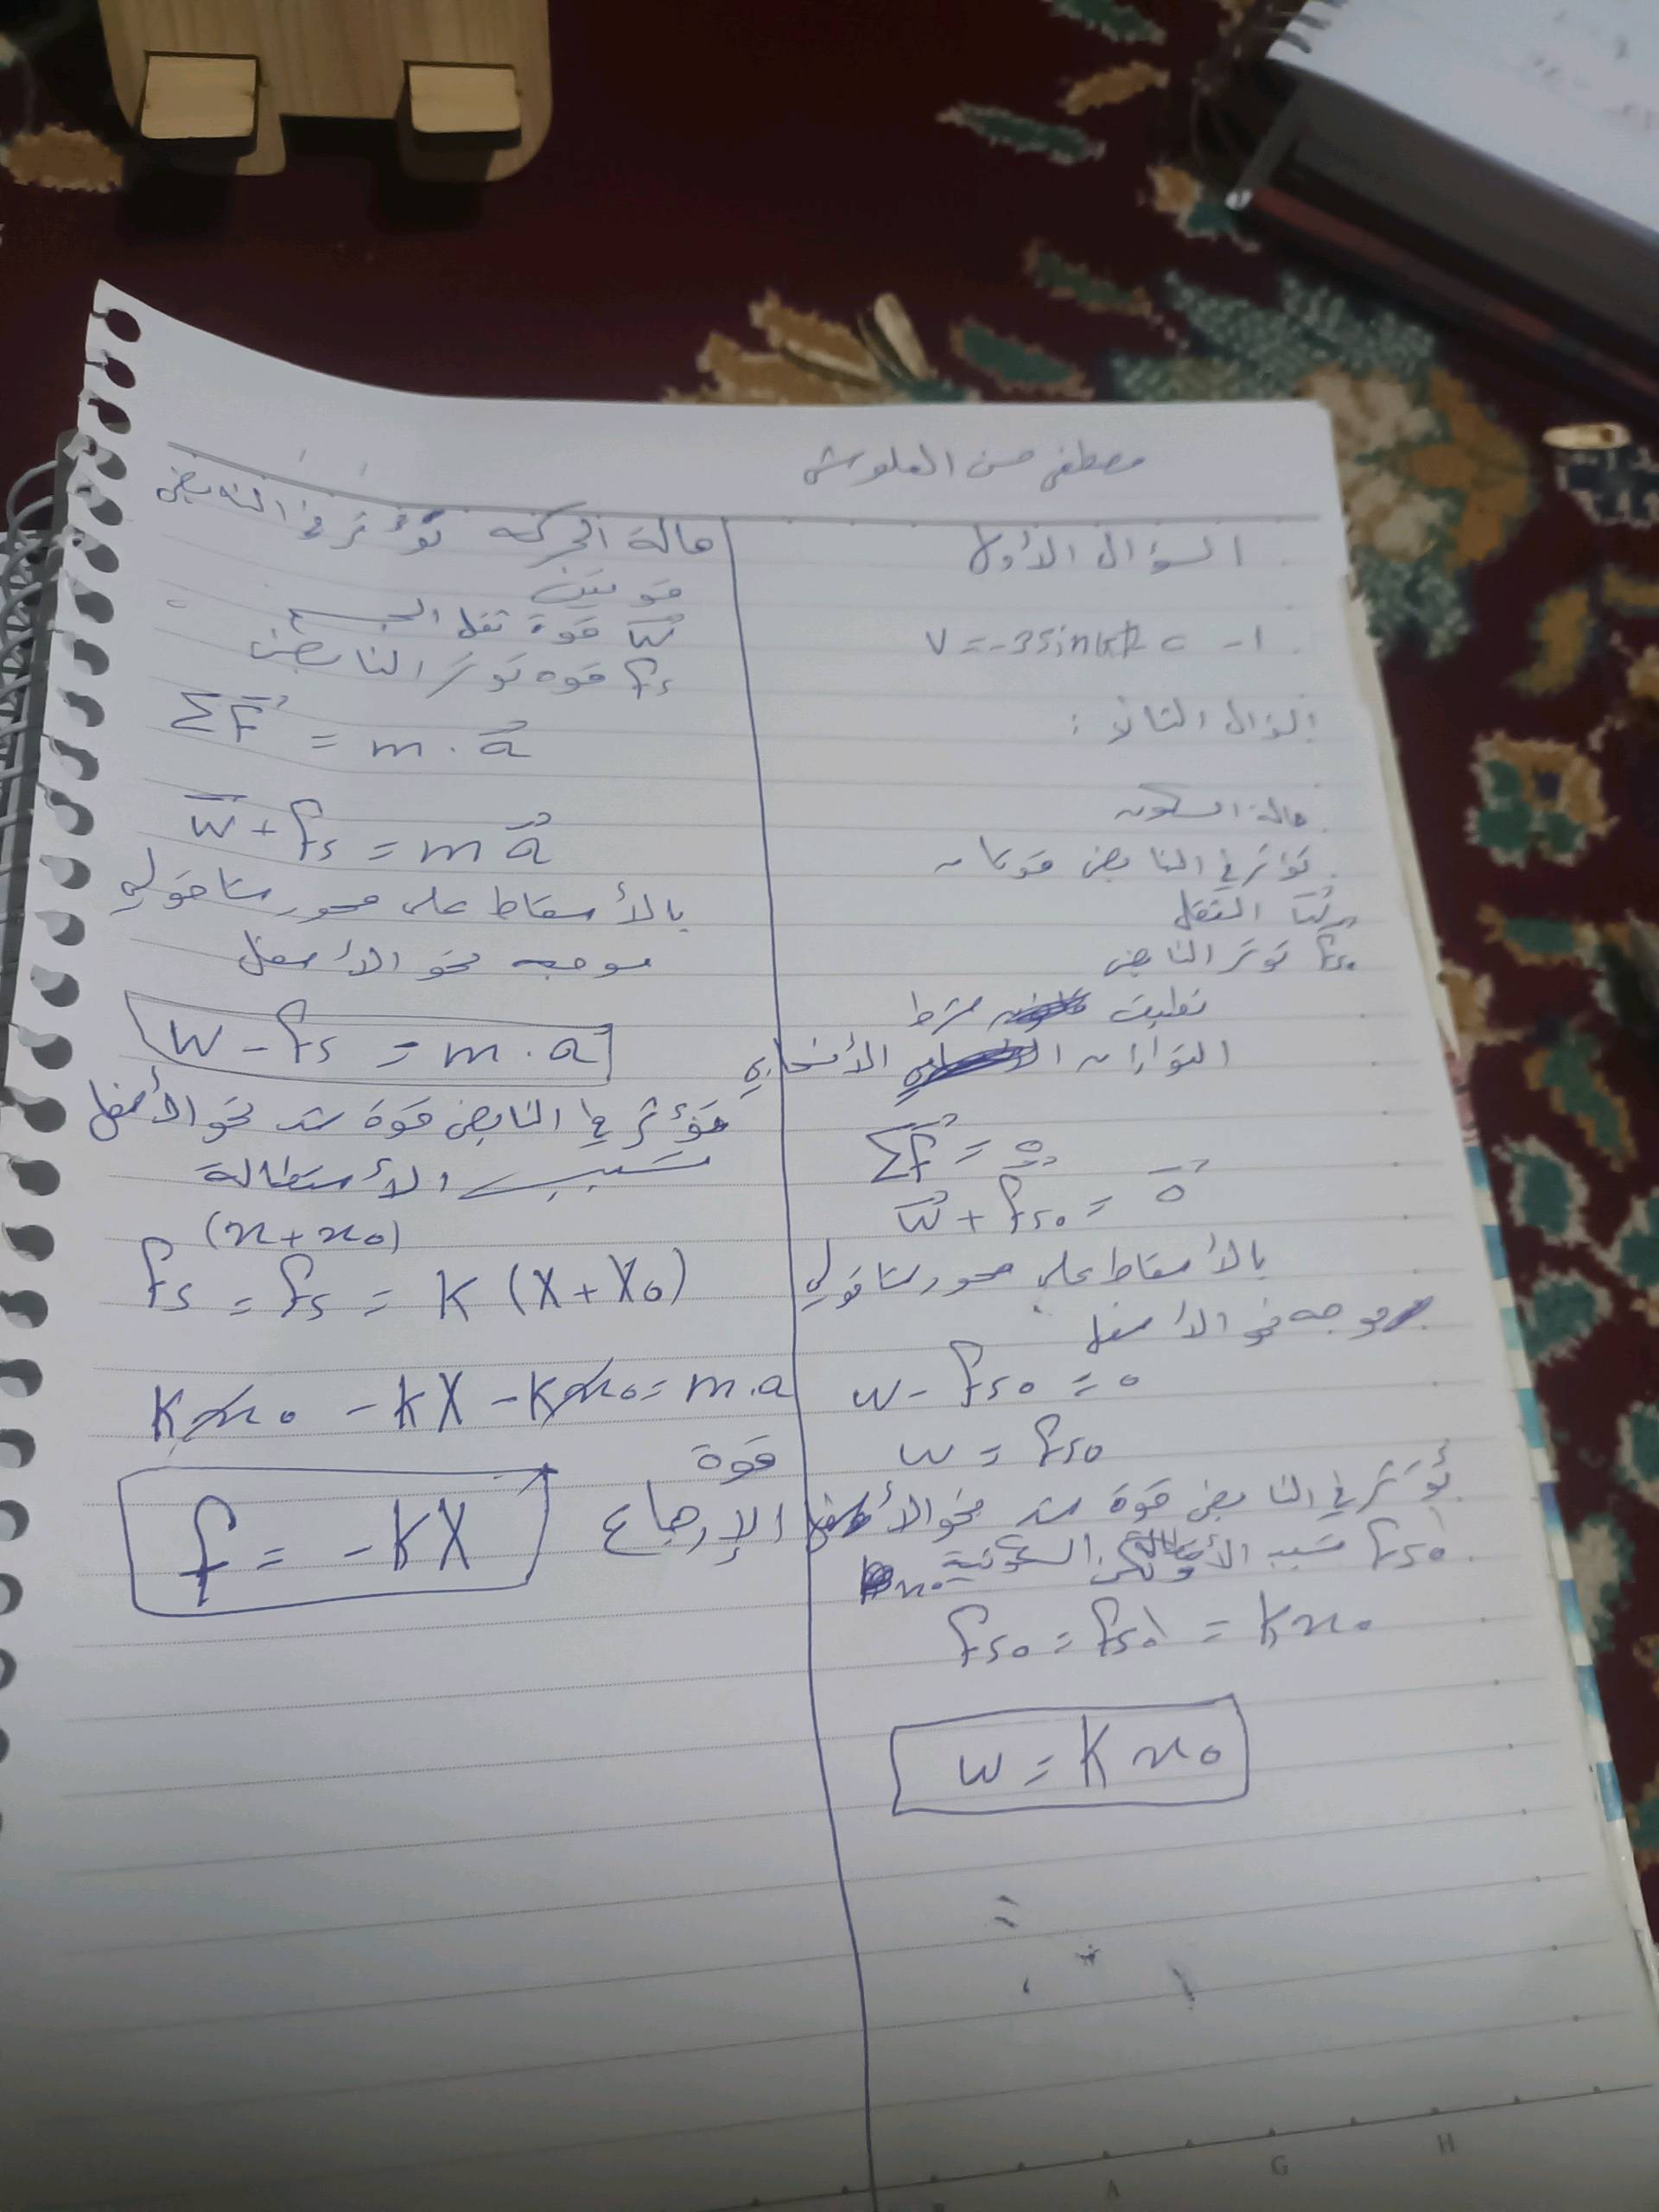 مصطفى حسن العلوش
السؤال الأول
1- c
السؤال الثاني :
حالة السكون
تؤثر في النابض قوتان
الثقل
fs₀ توتر النابض
شرط
التوازن الأنسحابي
ΣF⃗ = 0⃗
w⃗ + fs₀ = 0⃗
بالأسقاط على محور شاقولي
موجه نحو الأسفل
w - fs₀ = 0
w = fs₀
تؤثر في النابض قوة شد نحو الأسفل
fs₀' تسبب السكونية x₀
fs₀ = fs₀' = kx₀
w = k x₀
حالة الحركة تؤثر في النابض
قوتين
w⃗ قوة ثقل الجسم
fs قوه توتر النابض
ΣF⃗ = m . a⃗
w + fs = m a⃗
بالأسقاط على محور شاقولي
موجه نحو الأسفل
w - fs = m . a
تؤثر في النابض قوة شد نحو الأسفل
تسبب الأستطالة
(x + x₀)
fs = fs = k (X + X₀)
kx₀ - kX - kx₀ = m.a
قوة
الإرجاع f = -kX
A
G
H